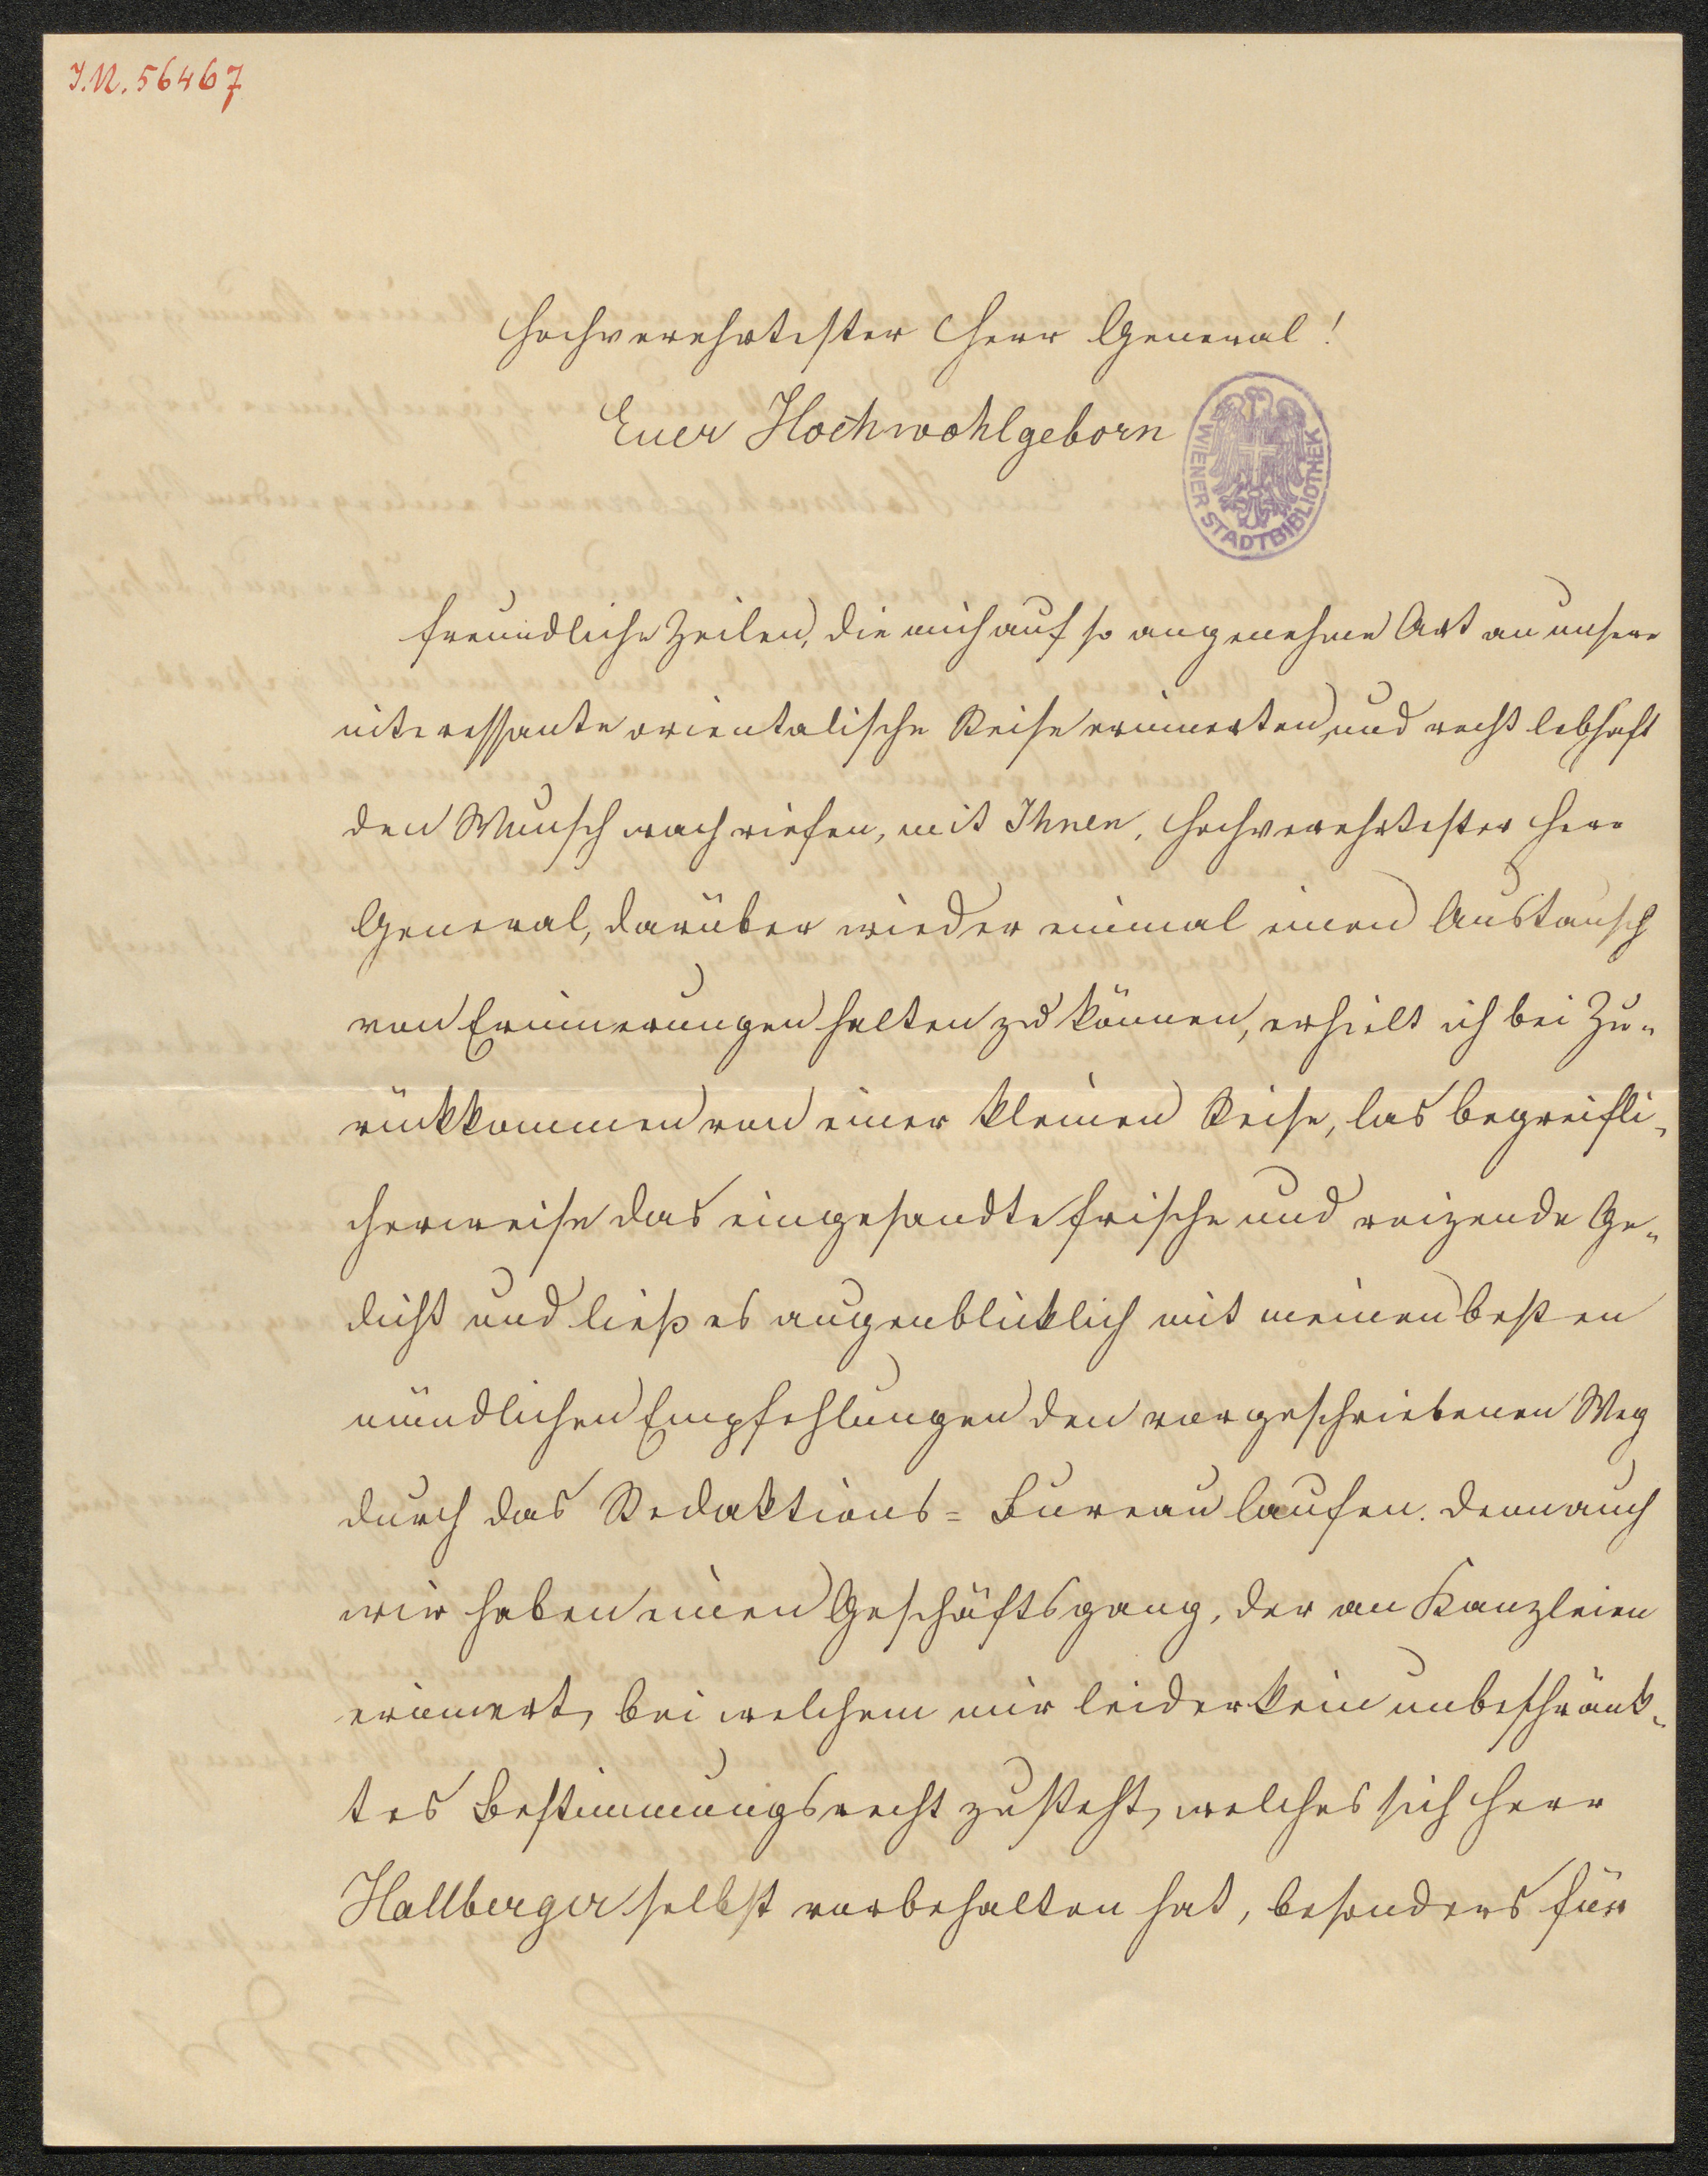 I.N. 56467
Hochverehrtester Herr General!
Euer Hochwohlgeborn
WIENER STADTBIBLIOTHEK
freundliche Zeilen, die mich auf so angenehme Art an unsere
interessante orientalische Reise erinnerten, und recht lebhaft
den Wunsch wach riefen, mit Ihnen, hochverehrtester Herr
General, darüber wieder einmal einen Austausch
von Erinnerungen halten zu können, erhielt ich bei Zu-
rückkommen von einer kleinen Reise, las begreifli-
cherweise das eingesandte frische und reizende Ge-
dicht und ließ es augenblicklich mit meinen besten
mündlichen Empfehlungen den vorgeschriebenen Weg
durch das Redaktions-Bureau laufen. Denn auch
wir haben einen Geschäftsgang, der an Kanzleien
erinnert, bei welchem mir leider kein unbeschränk-
tes Bestimmungsrecht zusteht, welches sich Herr
Hallberger selbst vorbehalten hat, besonders für